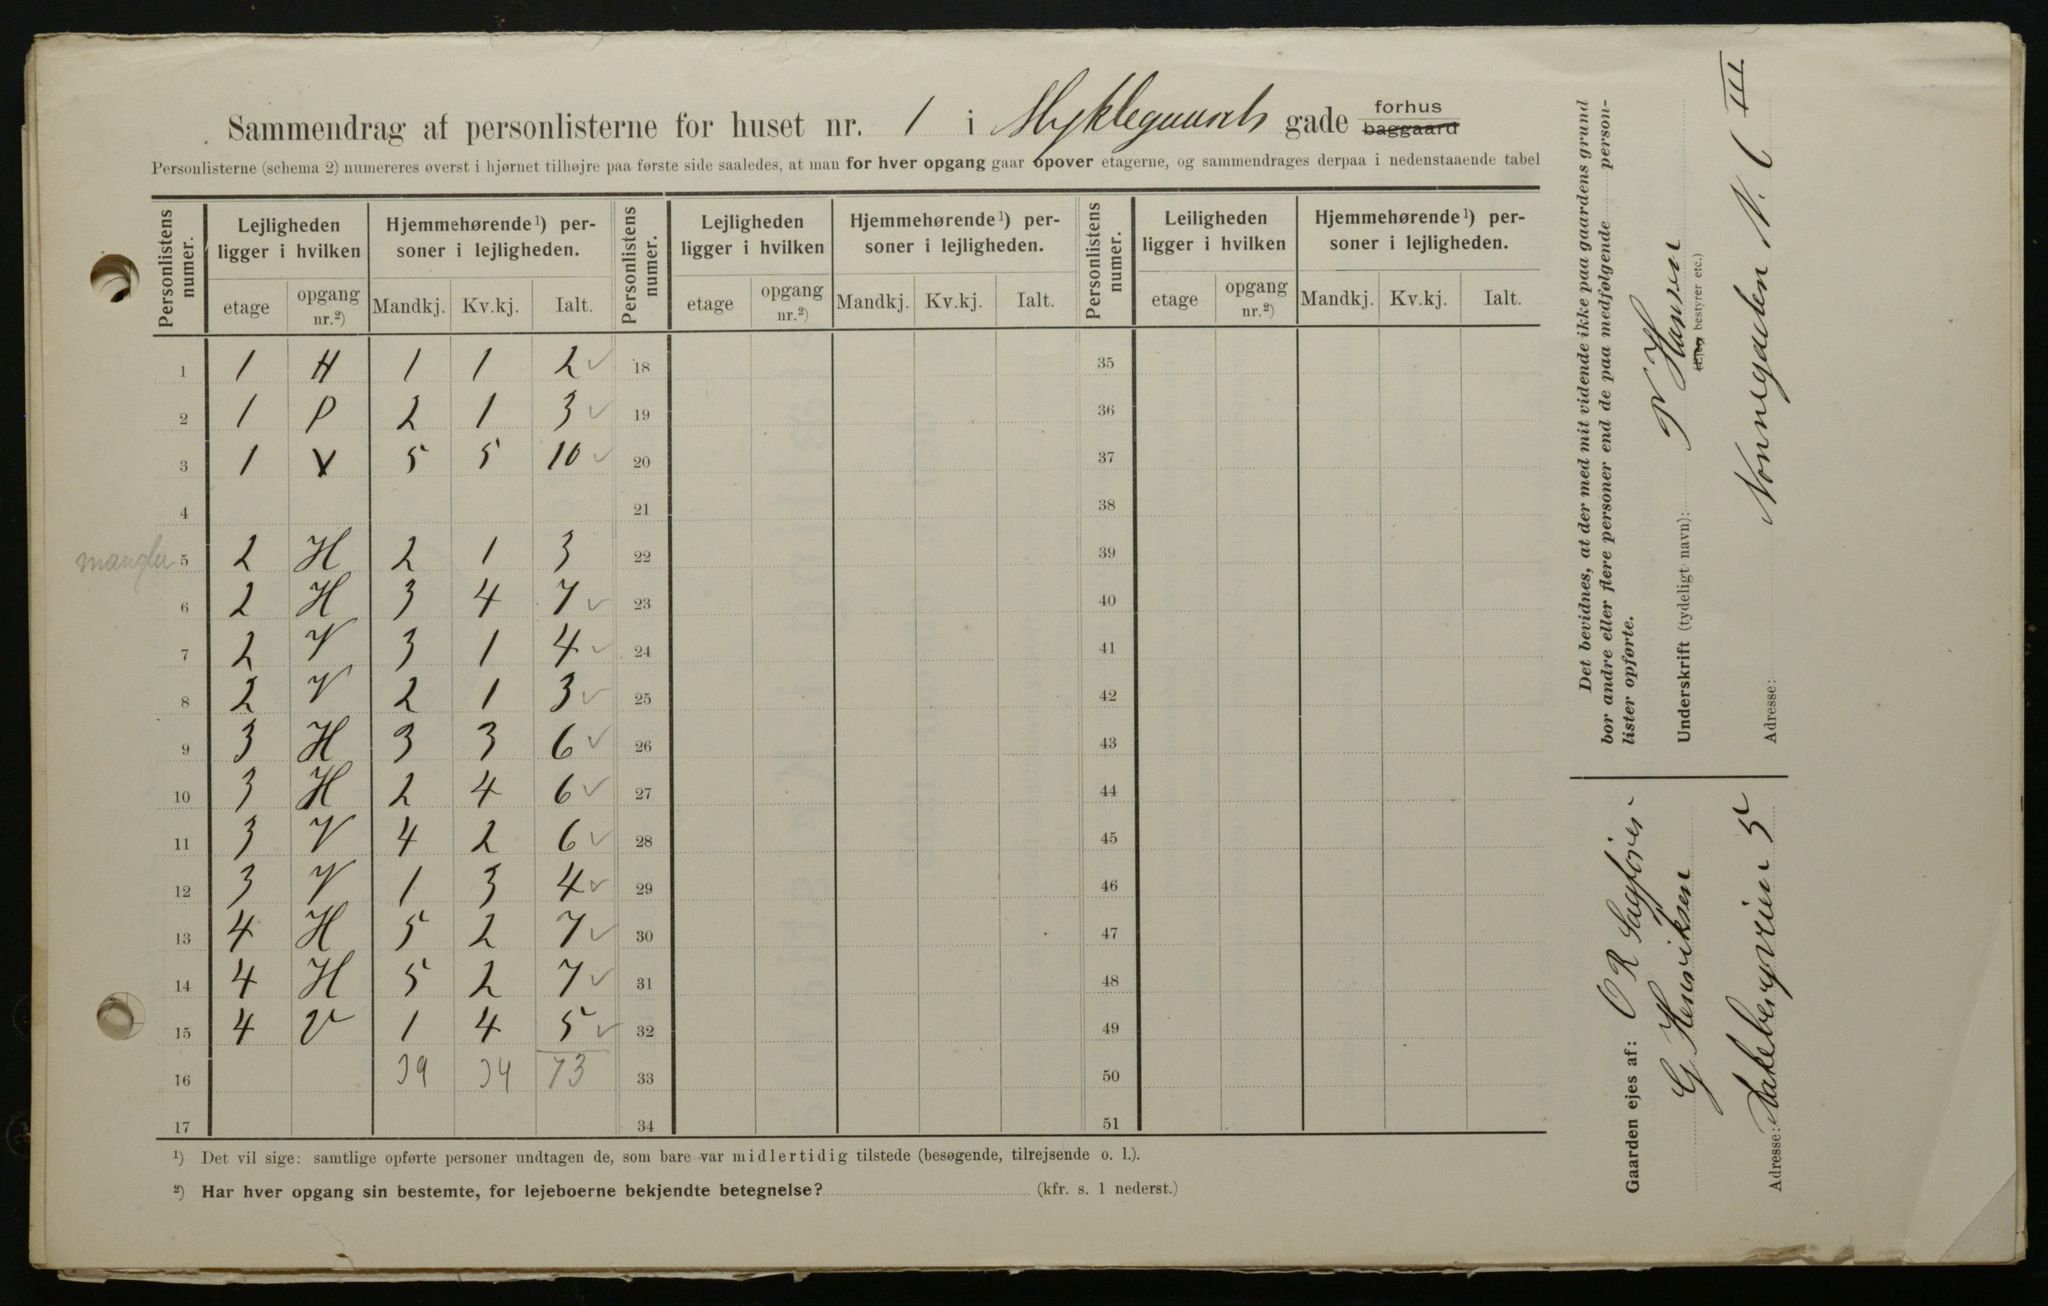 Sammendrag af personlisterne for huset nr. 1 i Myklegaards gade forhus baggaard
Personlisterne (schema 2) numereres øverst i hjørnet tilhøjre paa første side saaledes, at man for hver opgang gaar opover etagerne, og sammendrages derpaa i nedenstaaende tabel
Personlistens numer. Lejligheden ligger i hvilken Hjemmehørende¹) personer i lejligheden. Personlistens numer. Lejligheden ligger i hvilken Hjemmehørende¹) personer i lejligheden. Personlistens numer. Leiligheden ligger i hvilken Hjemmehørende¹) personer i lejligheden.
etage opgang nr.²) Mandkj. Kv.kj. Ialt. etage opgang nr.²) Mandkj. Kv.kj. Ialt. etage opgang nr.²) Mandkj. Kv.kj. Ialt.
1 1 H 1 1 2 ✓ 18 35
2 1 P 2 1 3 ✓ 19 36
3 1 V 5 5 10 ✓ 20 37
4 21 38
mangler 5 2 H 2 1 3 22 39
6 2 H 3 4 7 ✓ 23 40
7 2 V 3 1 4 ✓ 24 41
8 2 V 2 1 3 ✓ 25 42
9 3 H 3 3 6 ✓ 26 43
10 3 H 2 4 6 ✓ 27 44
11 3 V 4 2 6 ✓ 28 45
12 3 V 1 3 4 ✓ 29 46
13 4 H 5 2 7 ✓ 30 47
14 4 H 5 2 7 ✓ 31 48
15 4 V 1 4 5 ✓ 32 49
16 39 34 73 33 50
17 34 51
¹) Det vil sige: samtlige opførte personer undtagen de, som bare var midlertidig tilstede (besøgende, tilrejsende o. l.).
²) Har hver opgang sin bestemte, for lejeboerne bekjendte betegnelse? (kfr. s. 1 nederst.)
Det bevidnes, at der med mit vidende ikke paa gaardens grund
bor andre eller flere personer end de paa medfølgende personlister opførte.
Underskrift (tydeligt navn): N Hansen
(Ejer, bestyrer etc.)
Adresse: Nonnegaden N. 6 III
Gaarden ejes af: O R Sagfører
G Henriksen
Adresse: Akebergveien 5